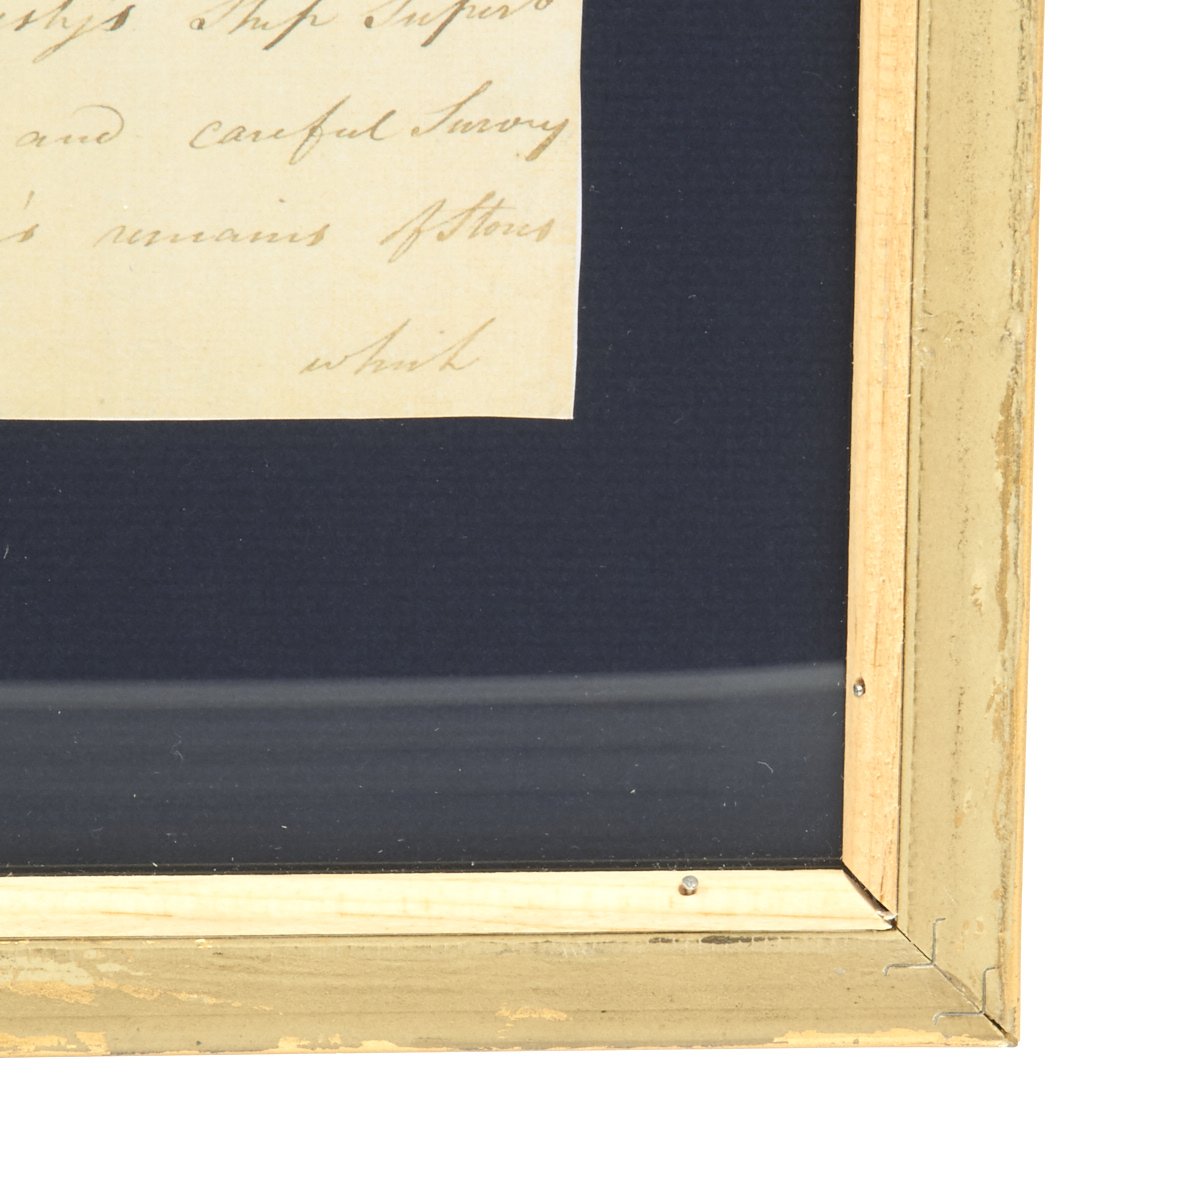 esty's Ship Superb
and careful Survey
's remains of Stores
which